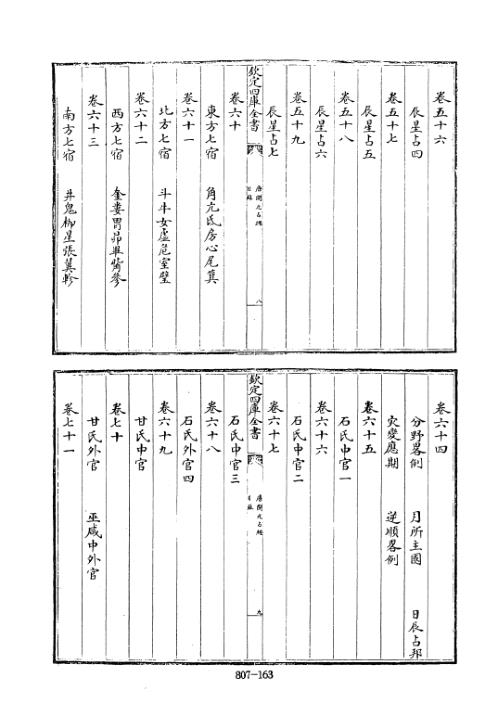 卷五十六
辰星占四
卷五十七
辰星占五
卷五十八
辰星占六
卷五十九
辰星占七
欽定四庫全書
唐開元占經
目錄
八
卷六十
東方七宿 角亢氐房心尾箕
卷六十一
北方七宿 斗牛女虛危室壁
卷六十二
西方七宿 奎婁胃昴畢觜參
卷六十三
南方七宿 井鬼柳星張翼軫
卷六十四
分野畧例 月所主國 日辰占邦
灾變應期 逆順畧例
卷六十五
石氏中官一
卷六十六
石氏中官二
卷六十七
欽定四庫全書
唐開元占經
目錄
九
石氏中官三
卷六十八
石氏外官四
卷六十九
甘氏中官
卷七十
甘氏外官 巫咸中外官
卷七十一
807-163